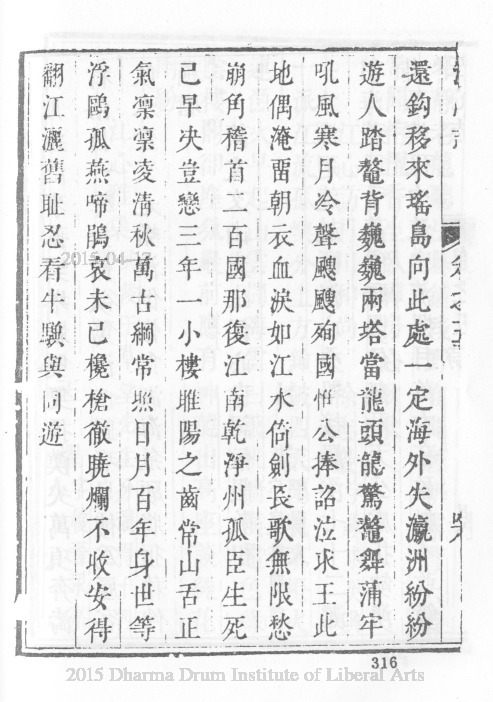 還鈎移來瑤島向此處一定海外失瀛洲紛紛
遊人踏鼇背巍巍兩塔當龍頭龍驚鼇舞蒲牢
吼風寒月冷聲颼颼殉國惟公捧詔泣求王此
地偶淹畱朝衣血淚如江水倚劍長歌無限愁
崩角稽首二百國那復江南乾淨州孤臣生死
已早决豈戀三年一小樓睢陽之齒常山舌正
氣凛凛凌清秋萬古綱常照日月百年身世等
浮鷗孤燕啼鵑哀未已欃槍徹曉爛不收安得
翻江灑舊耻忍看牛驥與同遊
316
2015 Dharma Drum Institute of Liberal Arts